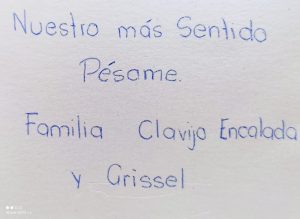 Nuestro más Sentido
Pésame.
Familia Clavijo Encalada
y Grissel